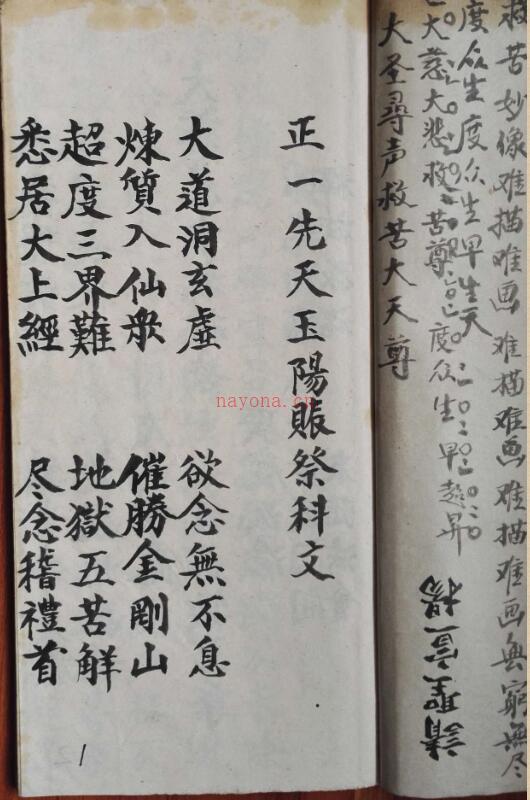 救苦妙像难描唯画难描难画难描难画無窮無尽
度众生度众生早生天
大慈大悲救苦尊度众生早超昇
大圣尋声救苦大天尊
請聖
正一先天玉陽賬祭科文
大道洞玄虛 欲念無不息
煉質入仙衆 催勝金剛山
超度三界難 地獄五苦解
悉居大上經 尽念稽禮首
1
nayona.cn